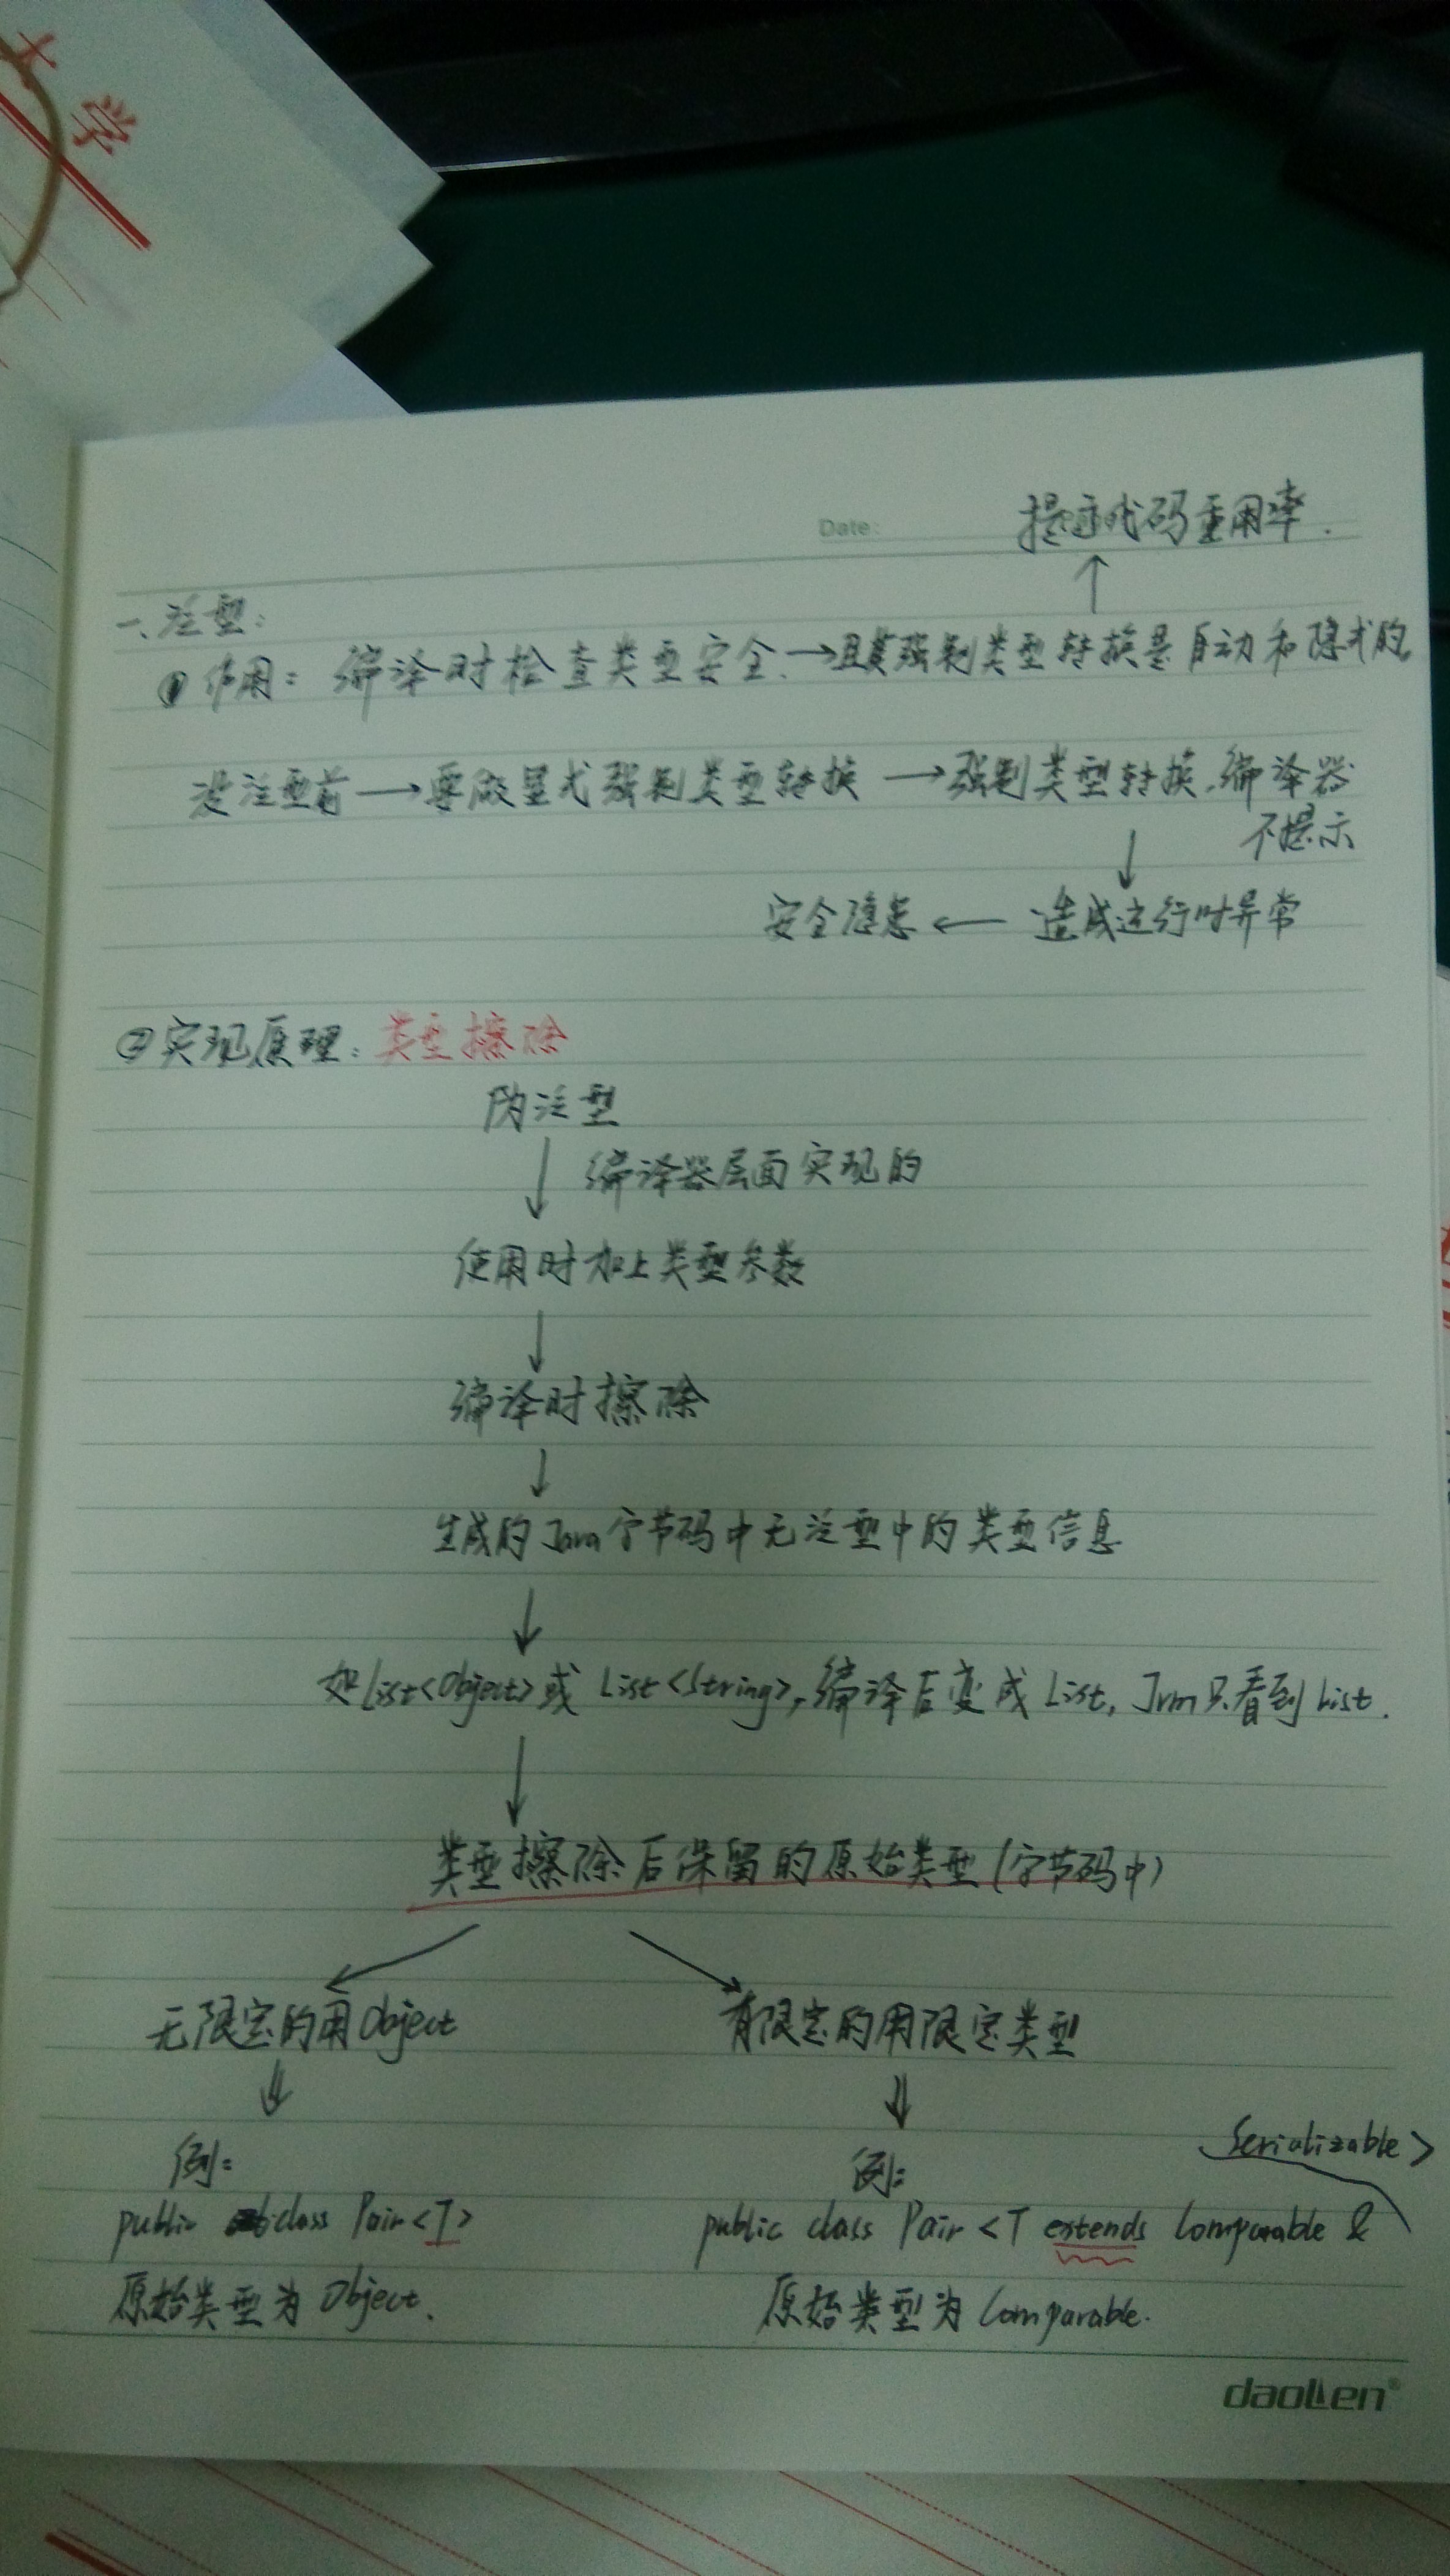 大学
Date:
提高代码重用率.
一、泛型:
①作用: 编译时检查类型安全.→且其强制类型转换是自动和隐式的
没泛型前→要做显式强制类型转换→强制类型转换,编译器
不提示
↓
安全隐患←造成运行时异常
②实现原理:类型擦除
伪泛型
↓编译器层面实现的
使用时加上类型参数
↓
编译时擦除
↓
生成的Java字节码中无泛型中的类型信息
↓
如List<Object>或 List<String>,编译后变成 List, Jvm只看到 List.
↓
类型擦除后保留的原始类型(字节码中)
无限定的用Object 有限定的用限定类型
例: 例:
Serializable>
public class Pair<T> public class Pair <T extends Comparable &
原始类型为 Object. 原始类型为 Comparable.
daolen®